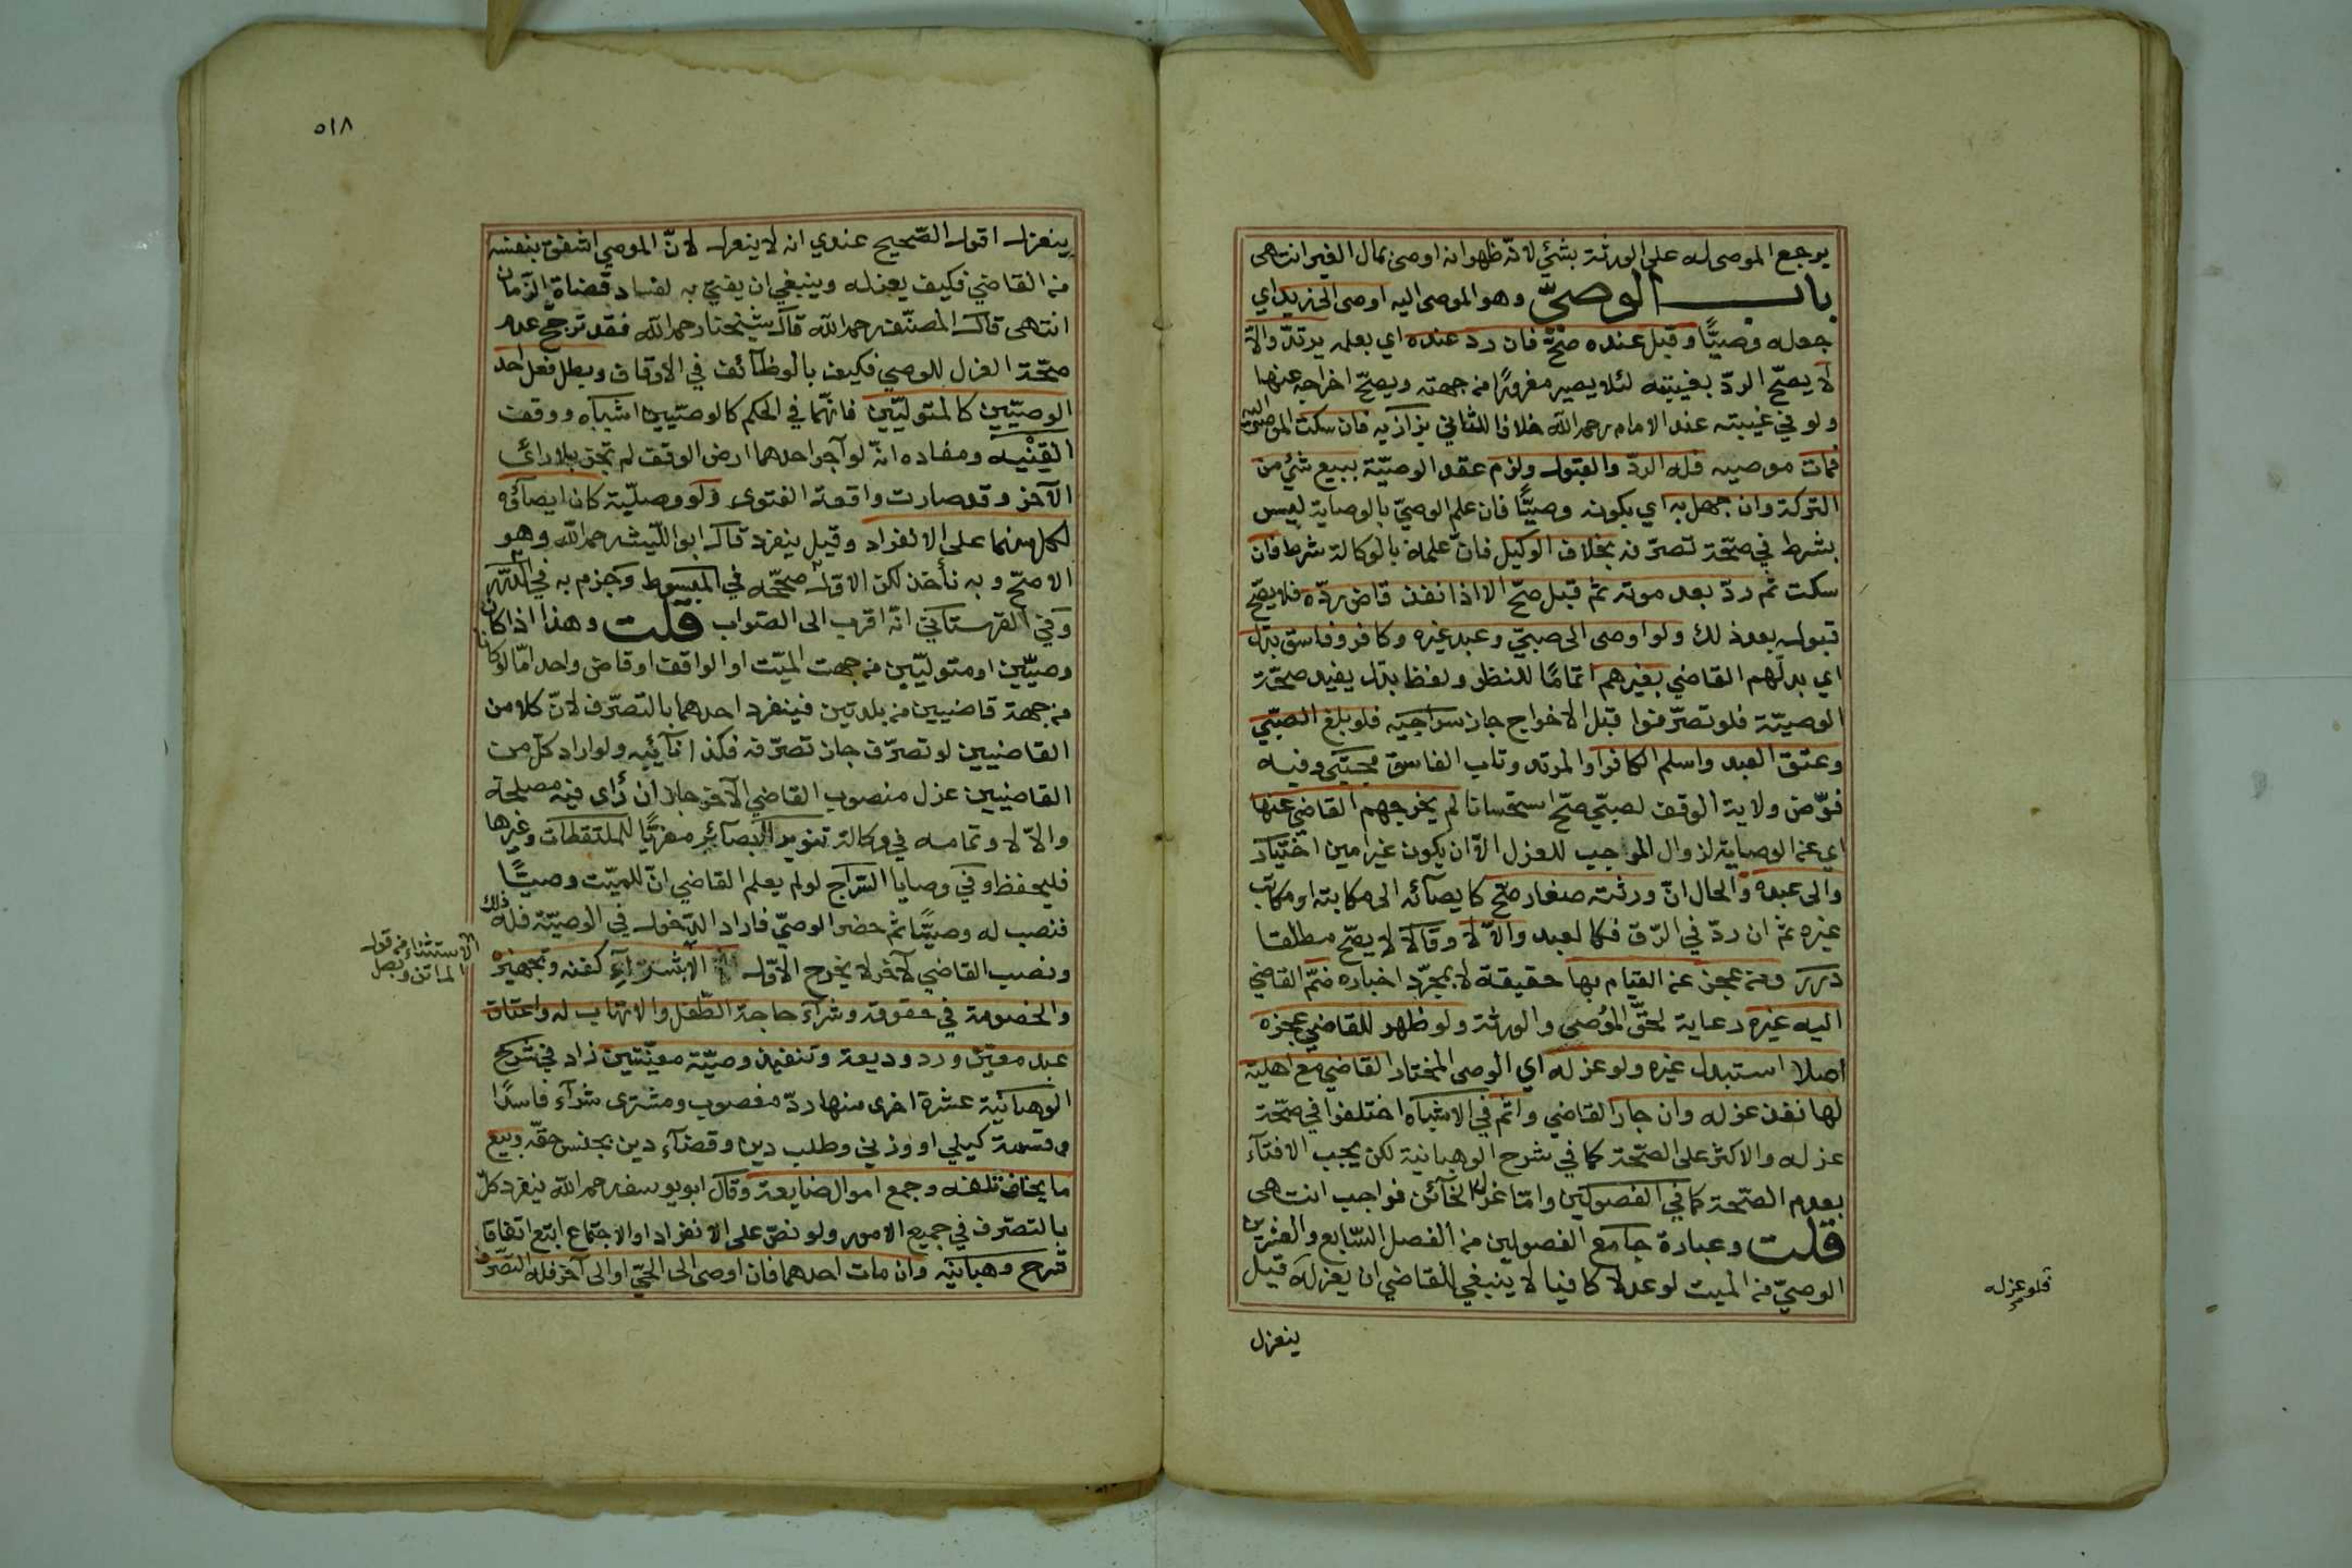 يرجع الموصى له على الورثة بشئ لانه ظهر انه اوصى بمال الغير انتهى
باب الوصيّ وهو الموصى اليه اوصى الى زيد اي
جعله وصيًّا وقبل عنده صحّ فان رد عنده اي بعلمه يرتدّ والّا
لا يصحّ الردّ بغيبته لئلا يصير مغرورًا من جهته ويصحّ اخراجه عنها
ولو في غيبته عند الامام رحمه الله خلافا للثاني بزازيه فان سكت الموصى اليه
فمات موصيه فله الردّ والقبول ولزم عقد الوصيّة ببيع شئ من
التركة وان جهل به اي بكونه وصيًّا فان علم الوصيّ بالوصاية ليس
بشرط في صحّة تصرّفه بخلاف الوكيل فانّ علمه بالوكالة شرط فان
سكت ثم ردّ بعد موته ثم قبل صحّ الا اذا نفذ قاض ردّه فلا يصحّ
قبوله بعد ذلك ولو اوصى الى صبيّ وعبد غيره وكافر وفاسق بدّل
اي بدلّهم القاضي بغيرهم اتمامًا للنظر ولفظ بدّل يفيد صحّة
الوصيّة فلو تصرّفوا قبل الاخراج جاز سراجيه فلو بلغ الصبّي
وعتق العبد واسلم الكافر او المرتد وتاب الفاسق مجتبى وفيه
فوّض ولاية الوقف لصبيّ صحّ استحسانا لم يخرجهم القاضي عنها
اي عن الوصاية لزوال الموجب للعزل الّا ان يكون غير امين اختيار
والى عبده والحال انّ ورثته صغار صحّ كايصائه الى مكابته او مكاتب
غيره ثم ان ردّ في الرّق فكالعبد والّا لا وقالا لا يصحّ مطلقا
درر ومن عجز عن القيام بها حقيقة لا بمجرّد اخباره ضمّ القاضي
اليه غيره رعاية لحقّ الموصى والورثة ولو ظهر للقاضي عجزه
اصلا استبدل غيره ولو عزله اي الوصى المختار القاضي مع اهليته
لها نفذ عزله وان جار القاضي واثم في الاشباه اختلفوا في صحّة
عزله والاكثر على الصّحة كما في شرح الوهبانية لكن يجب الافتآء
بعدم الصّحة كما في الفصولين وامّا عزل الخآئن فواجب انتهى
قلت وعبارة جامع الفصولين من الفصل السّابع والعشرين
الوصيّ من الميت لو عدلا كافيا لا ينبغي للقاضي ان يعزله قيل
فلو عزله
ينعزل
٥١٨
ينعزل اقول الصّحيح عندي انه لا ينعزل لانّ الموصي اشفق بنفسه
من القاضي فكيف يعزله وينبغي ان يفتيّ به لفساد قضاة الزّمان
انتهى قال المصنّف رحمه الله قال شيخنا رحمه الله فقد ترجّح عدم
صحّة العزل للوصي فكيف بالوظآئف في الاوقاف وبطل فعل احد
الوصيّين كالمتوليّين فانهّما في الحكم كالوصيّين اشباه ووقف
القنْيه ومفاده انّه لو آجر احدهما ارض الوقف لم تجز بلا رائ
الآخر وقد صارت واقعة الفتوى ولو وصليّة كان ايصآؤه
لكل منهما على الانفراد وقيل ينفرد قال ابو الليث رحمه الله وهو
الاصحّ وبه نأخذ لكن الاول صحّحه في المبسوط وجزم به في الدّرر
وفي القهستاني انّه اقرب الى الصّواب قلت وهذا اذا كان
وصيّين او متوليّين من جهت الميّت او الواقف او قاض واحد امّا لو كانا
من جهة قاضيين من بلدتين فينفرد احدهما بالتصرّف لانّ كلا من
القاضيين لو تصرّف جاز تصرّفه فكذا نآئبه ولو اراد كلّ من
القاضيين عزل منصوب القاضي الآخر جاز ان رأى فيه مصلحة
والّا لا وتمامه في وكالة تنوير البصآئر معزيًّا للملتقطات وغيرها
فليحفظ وفي وصايا السّراج لو لم يعلم القاضي انّ للميّت وصيًّا
فنصب له وصيًّا ثم حضر الوصيّ فاراد الدّخول في الوصيّة فله ذلك
ونصب القاضي لآخر لا يخرج الاوّل الا بشرآءِ كفنه وتجهيزه
الاستثناء من قول
الماتن وبطل
والخصومة في حقوقه وشرآء حاجة الطّفل والاتهاب له واعتاق
عبد معيّن ورد وديعة وتنفيذ وصيّة معيّنتين زاد في شرح
الوهبانيّة عشرة اخرى منها ردّ مغصوب ومشترى شرآء فاسدًا
وقسمة كيلي او وزنيّ وطلب دين وقضآء دين بجنس حقّه وبيع
ما يخاف تلفه وجمع اموال ضايعة وقال ابو يوسف رحمه الله ينفرد كلّ
بالتصرّف في جميع الامور ولو نصّ على الانفراد او الاجتماع اتبع اتفاقا
شرح وهبانيّه وان مات احدهما فان اوصى الى الحيّ او الى آخر فله التصّرف